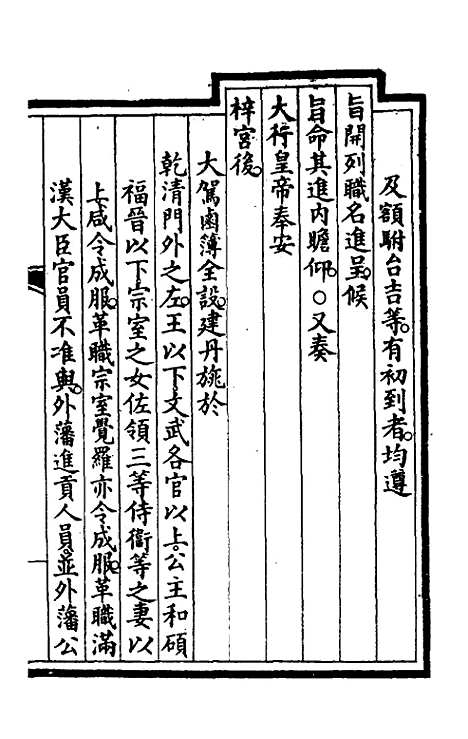 及額駙台吉等。有初到者。均遵
旨開列職名進呈。候
旨命其進內瞻仰。○又奏
大行皇帝奉安
梓宮後。
大駕鹵簿全設。建丹旐於
乾清門外之左。王以下文武各官以上。公主和碩
福晉以下宗室之女佐領三等侍衞等之妻以
上。咸令成服。革職宗室覺羅亦令成服。革職滿
漢大臣官員不准與。外藩進貢人員。並外藩公